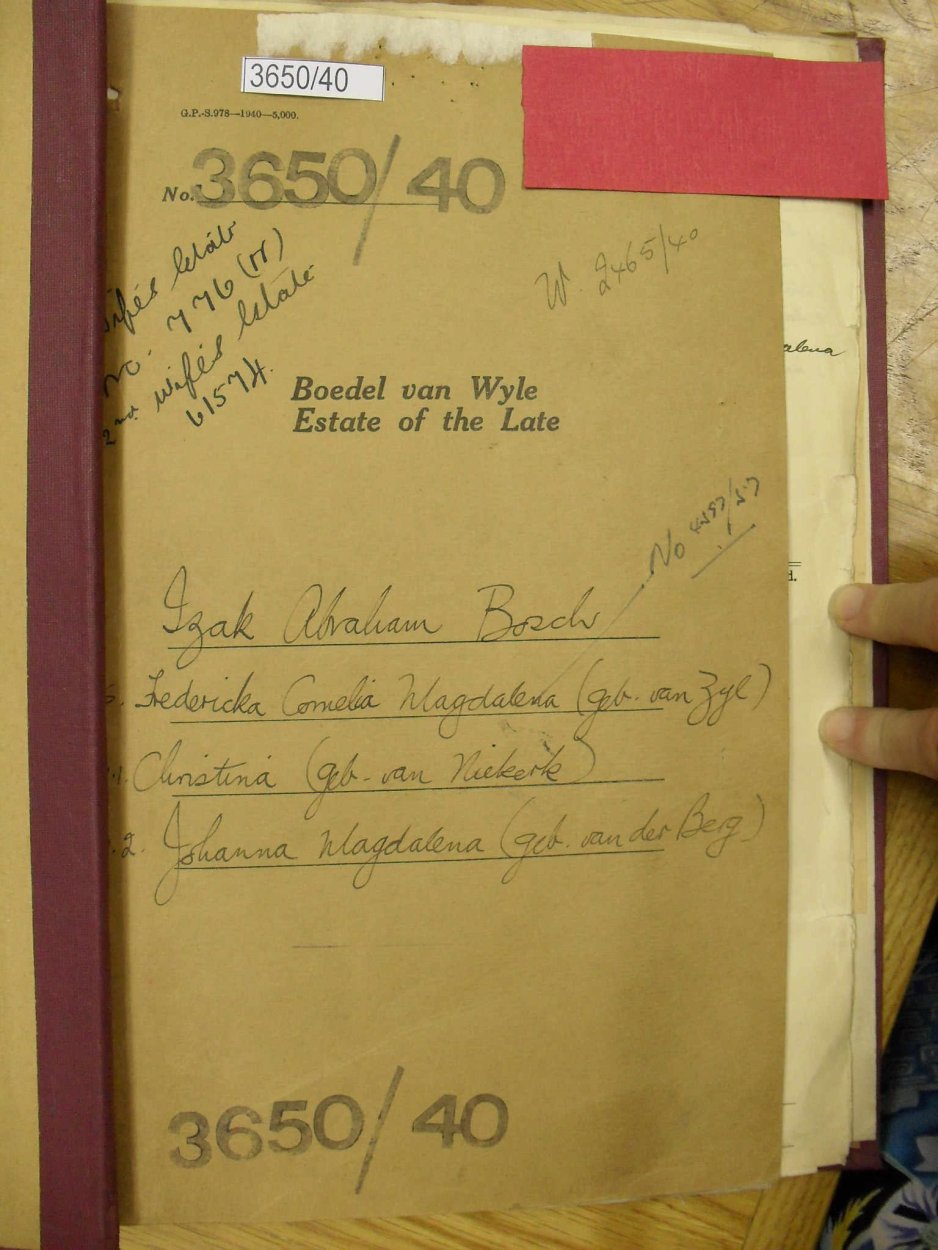 3650/40
G.P.-S.978—1940—5,000.
No. 3650/40
W. 2465/40
wife's Estate
No. 776 (M)
2nd wife's Estate
61574.
Boedel van Wyle
Estate of the Late
No 4597/57
Izak Abraham Bosch
S. Fredericka Cornelia Magdalena (geb. van Zyl)
Christina (geb. van Niekerk)
2. Johanna Magdalena (geb. van der Berg)
3650/40